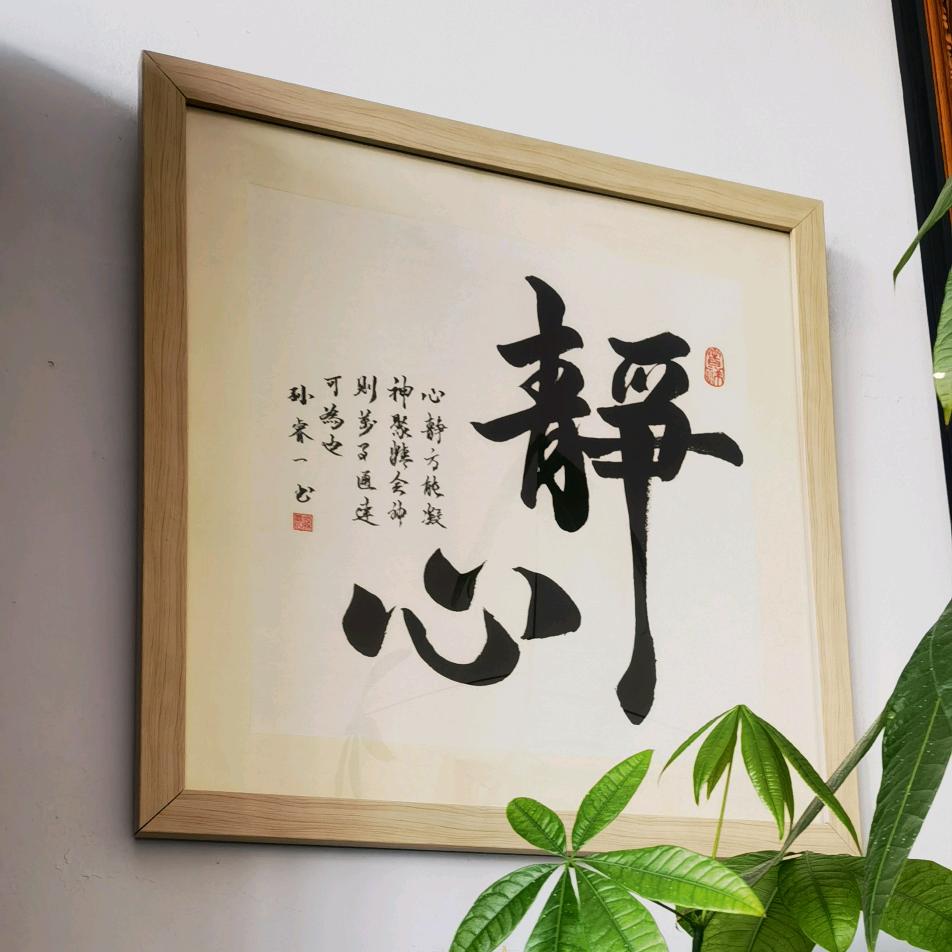 靜心
心静方能凝
神聚精会神
则萬事通達
可為也
孙睿一 书